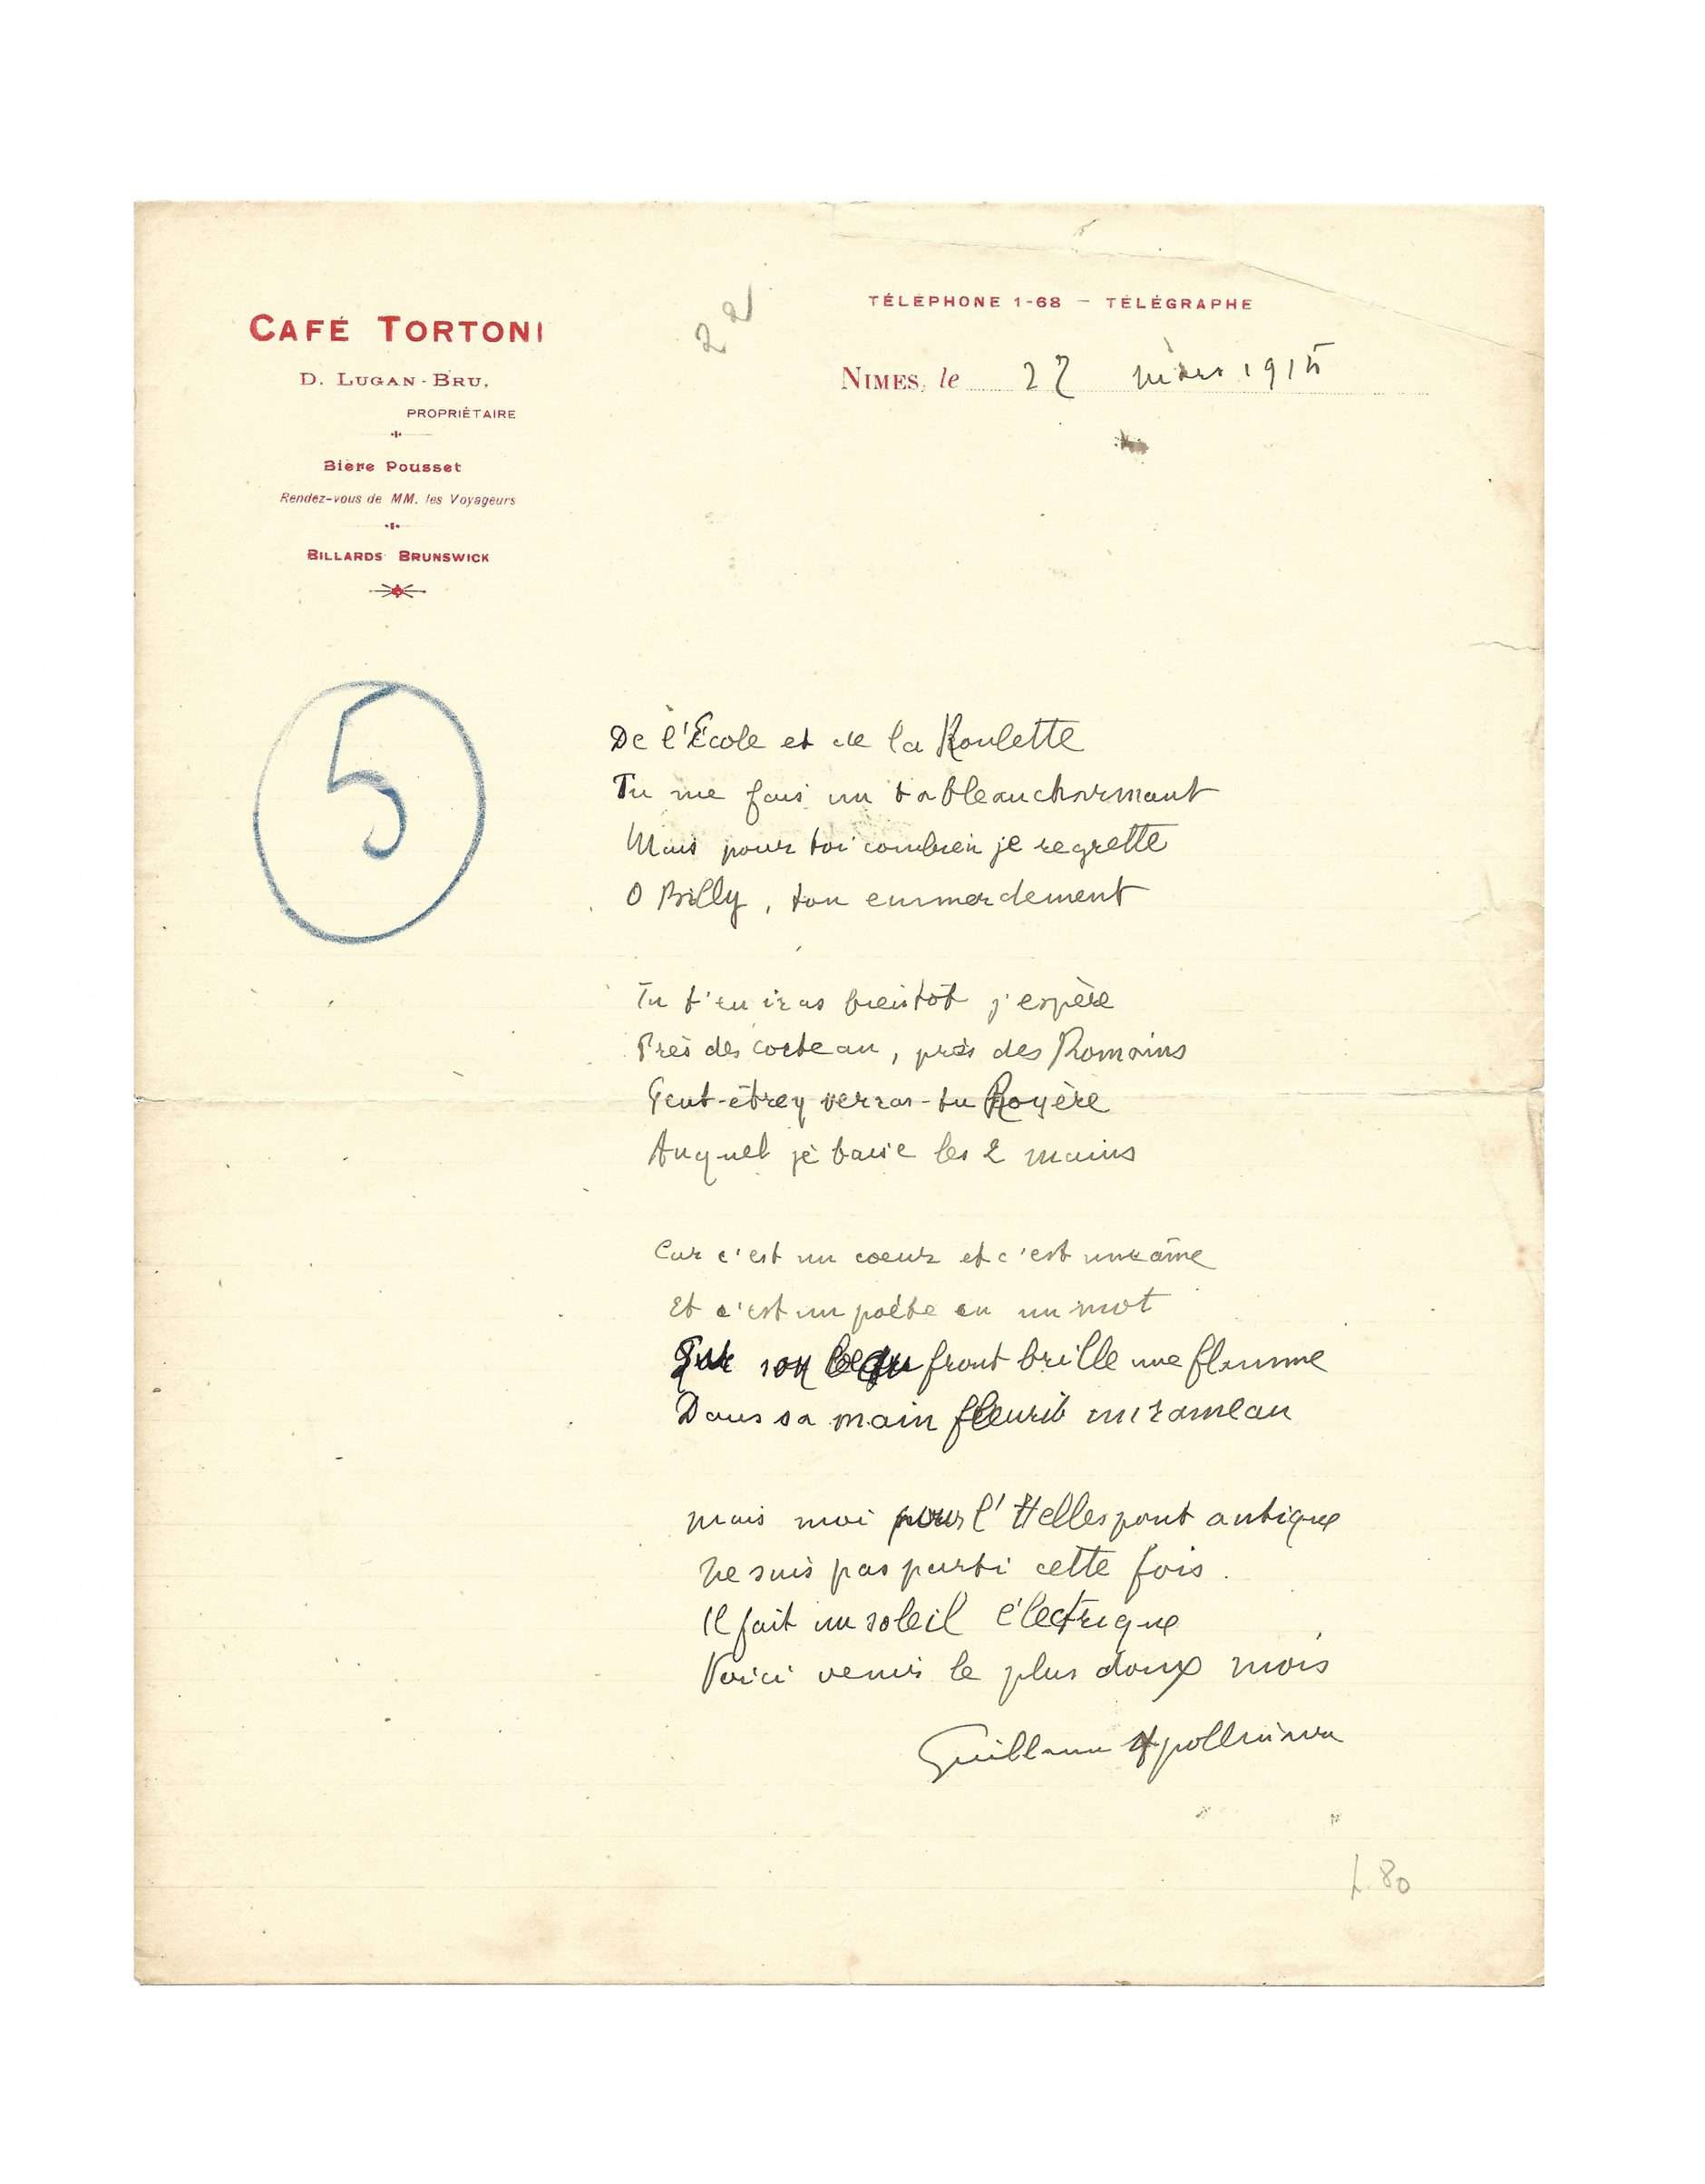 CAFÉ TORTONI
D. LUGAN-BRU,
PROPRIÉTAIRE
Bière Pousset
Rendez-vous de MM. les Voyageurs
BILLARDS BRUNSWICK
22
TÉLÉPHONE 1-68 — TÉLÉGRAPHE
NIMES, le 22 mars 1915
5
De l'École et de la Roulette
Tu me fais un tableau charmant
Mais pour toi combien je regrette
O Billy, ton emmerdement
Tu t'en iras bientôt j'espère
Près des , près des Romains
Peut-être y verras-tu Royère
Auquel je baise les 2 mains
Car c'est un coeur et c'est une âme
Et c'est un poète en un mot
Sur son beau front brille une flamme
Dans sa main fleurit un rameau
Mais moi pour l'Hellespont antique
Ne suis pas parti cette fois.
Il fait un soleil électrique
Voici venir le plus doux mois
Guillaume Apollinaire
80